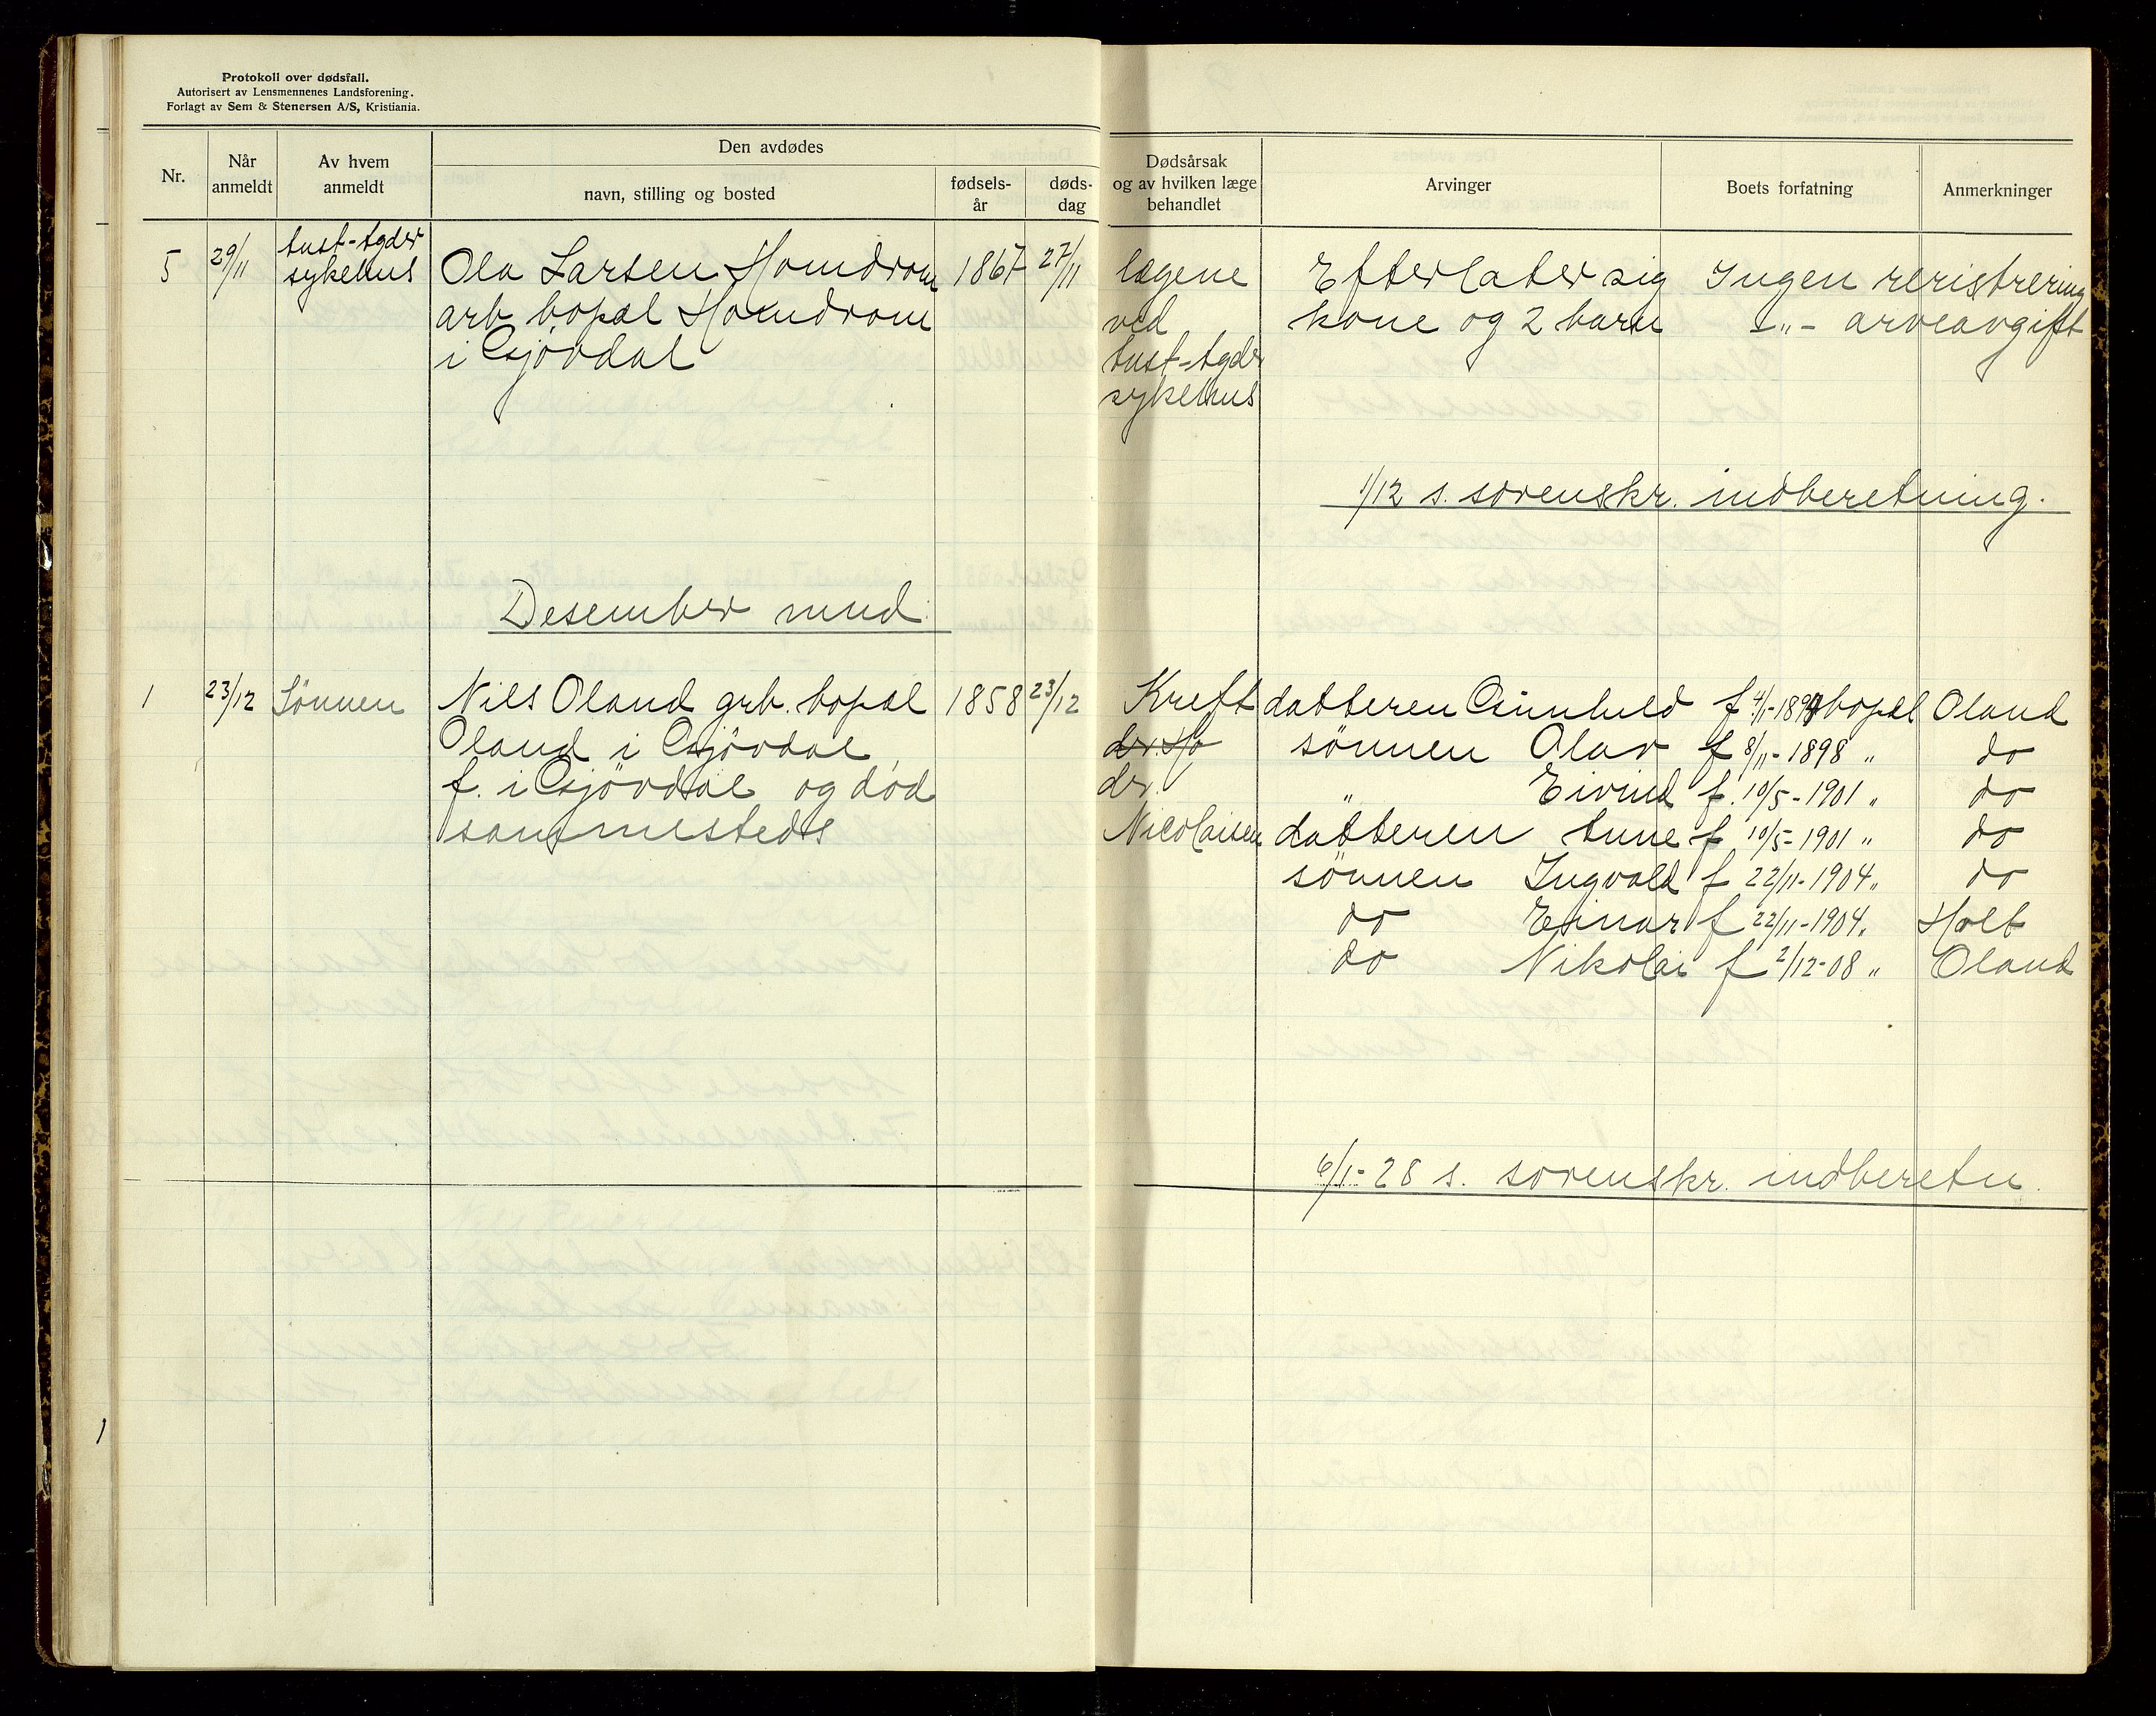 Protokoll over dødsfall.
Autorisert av Lensmennenes Landsforening.
Forlagt av Sem & Stenersen A/S, Kristiania.
Nr.
Når anmeldt
Av hvem anmeldt
Den avdødes
navn, stilling og bosted
fødsels-år
døds-dag
Dødsårsak og av hvilken læge behandlet
Arvinger
Boets forfatning
Anmerkninger
5 29/11 Aust-Agder sykehus
Ola Larsen Homdrom 1867 27/11
arb bopæl Homdrom
i Gjøvdal
lægene
ved
Aust-Agder
sykehus
Efterlater sig Ingen reristrering
kone og 2 barn -"- arveavgift
1/12 s. sorenskr. indberetning.
Desember mnd.
1 23/12 Sönnen
Nils Oland grb. bopæl 1858 23/12
Oland i Gjövdal
f. i Gjövdal og död
sammesteds
Kreft
dr. Ho
dr.
Nicolaisen
datteren Gunhild f 4/1-1897 bopæl Oland
sönnen Olav f 8/11-1898 " do
" Eivind f. 10/5-1901 " do
datteren Anne f 10/5-1901 " do
sönnen Ingvald f 22/11-1904 " do
do Einar f 22/11-1904 " Holt
do Nikolai f 2/12-08 " Oland
6/1-28 s. sorenskr. indberetn.